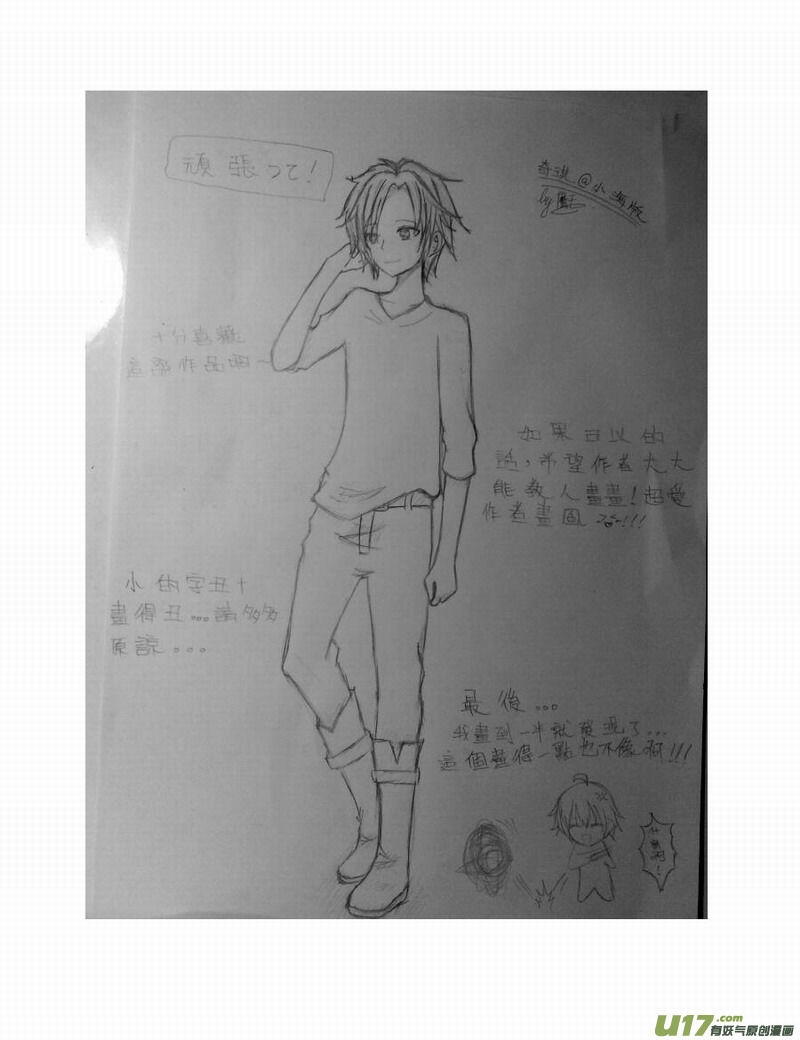 頑張って!
奇洪@小海版
by
十分喜歡
這部作品啊~
如果可以的
話,希望作者大大
能教人畫畫!超愛
作者畫風
小的字丑+
畫得丑...請多多
原諒...
最後...
我畫到一半就發現了...
這個畫得一點也不像啊!!!
U17.com
有妖气原创漫画